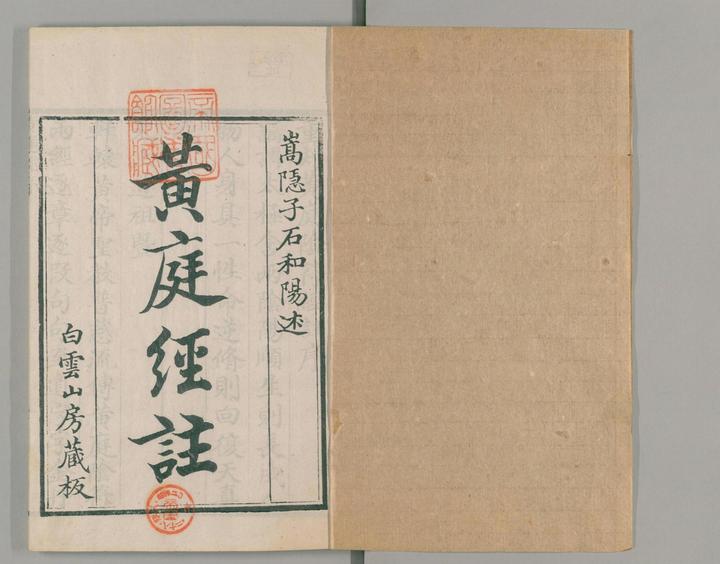 嵩隠子石和陽述
黃庭經註
白雲山房蔵板